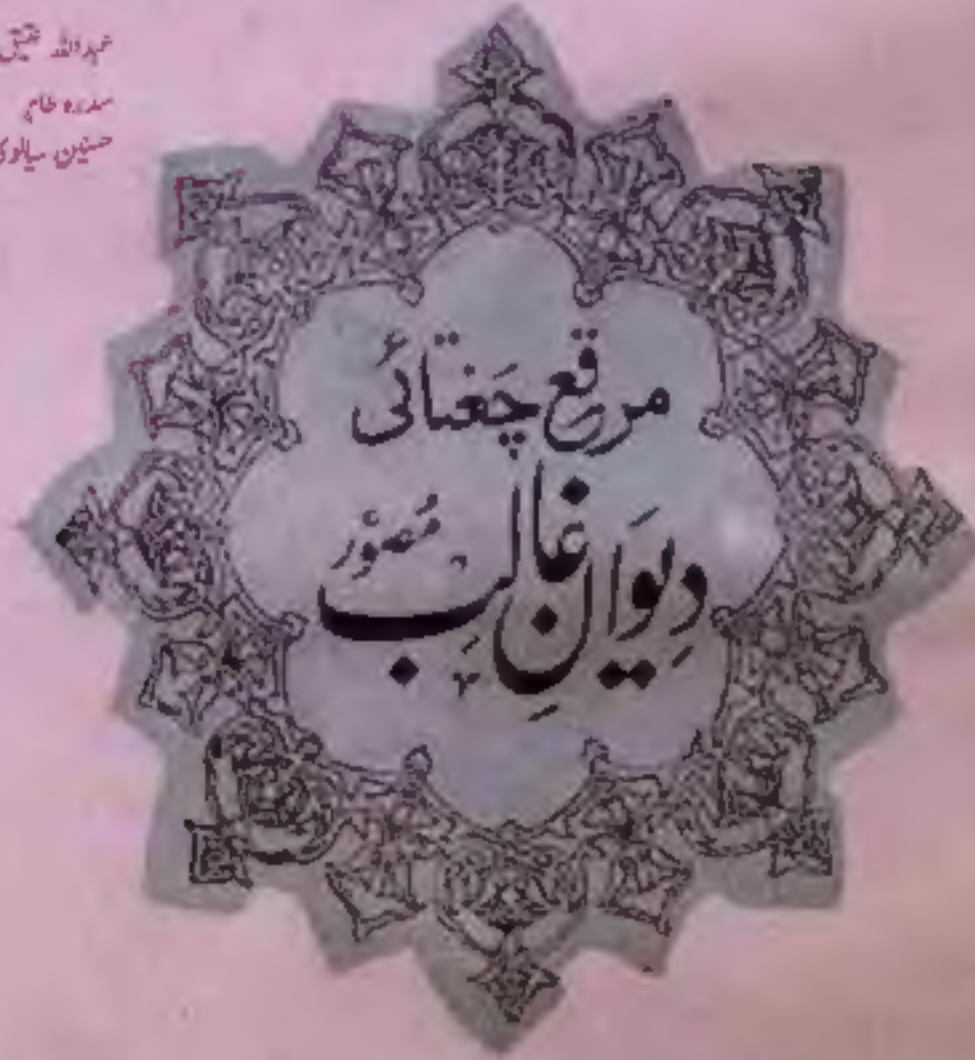 عبداللہ عتیق
سدرہ طاہر
حسنین سیالوی
مرقع چغتائی
دیوانِ غالِب مُصوّر